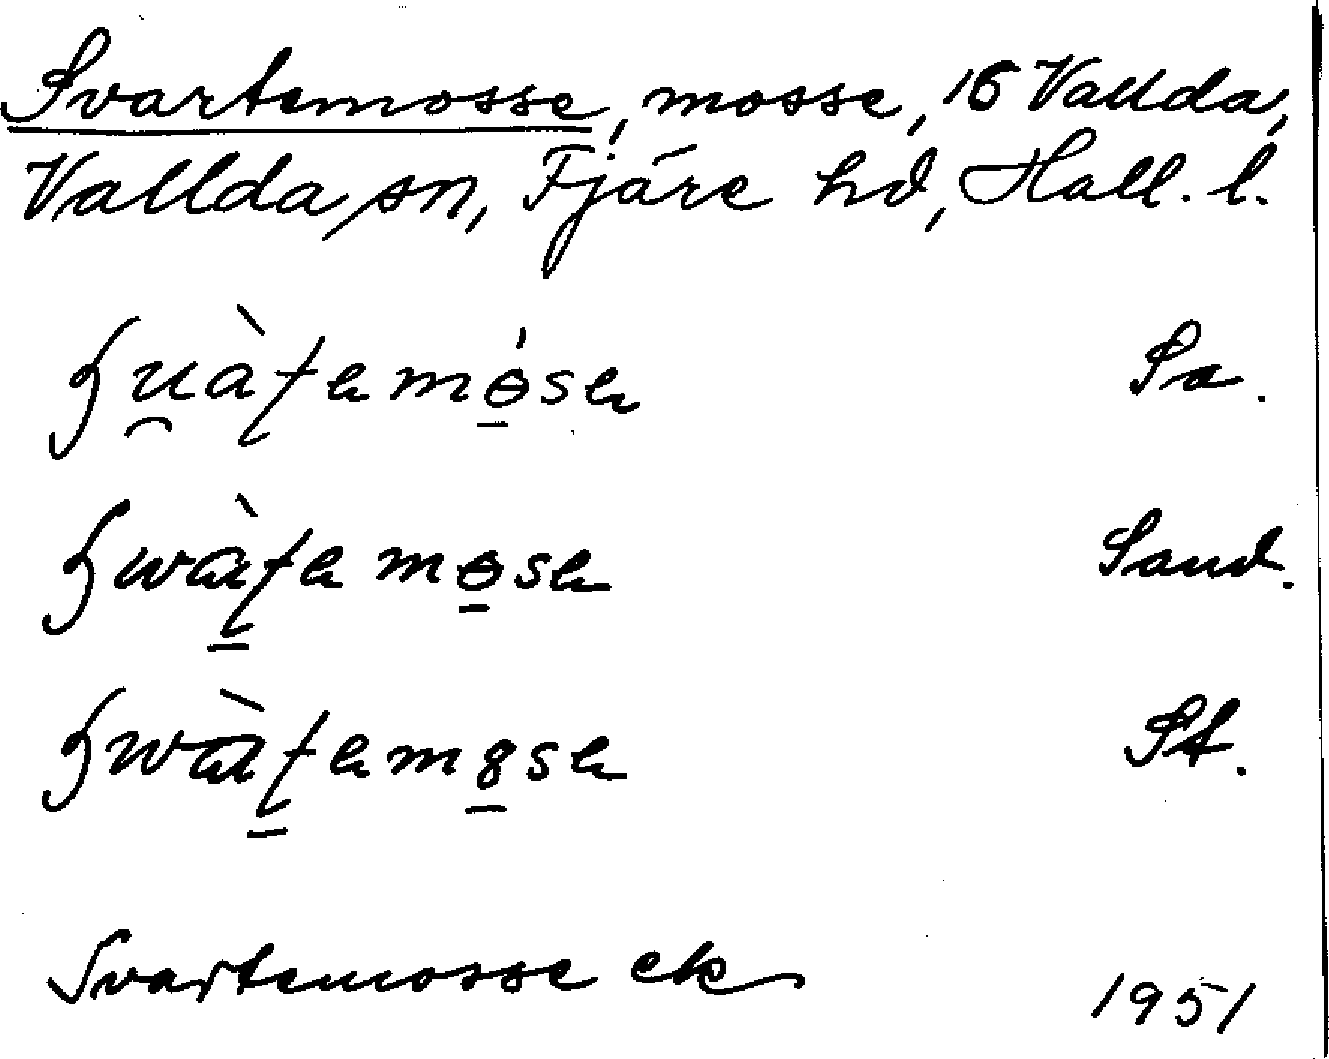 Svartemosse, mosse, 16 Vallda,
Vallda sn, Fjäre hd, Hall. l.
Sa.
Sand.
St.
Svartemosse ek
1951